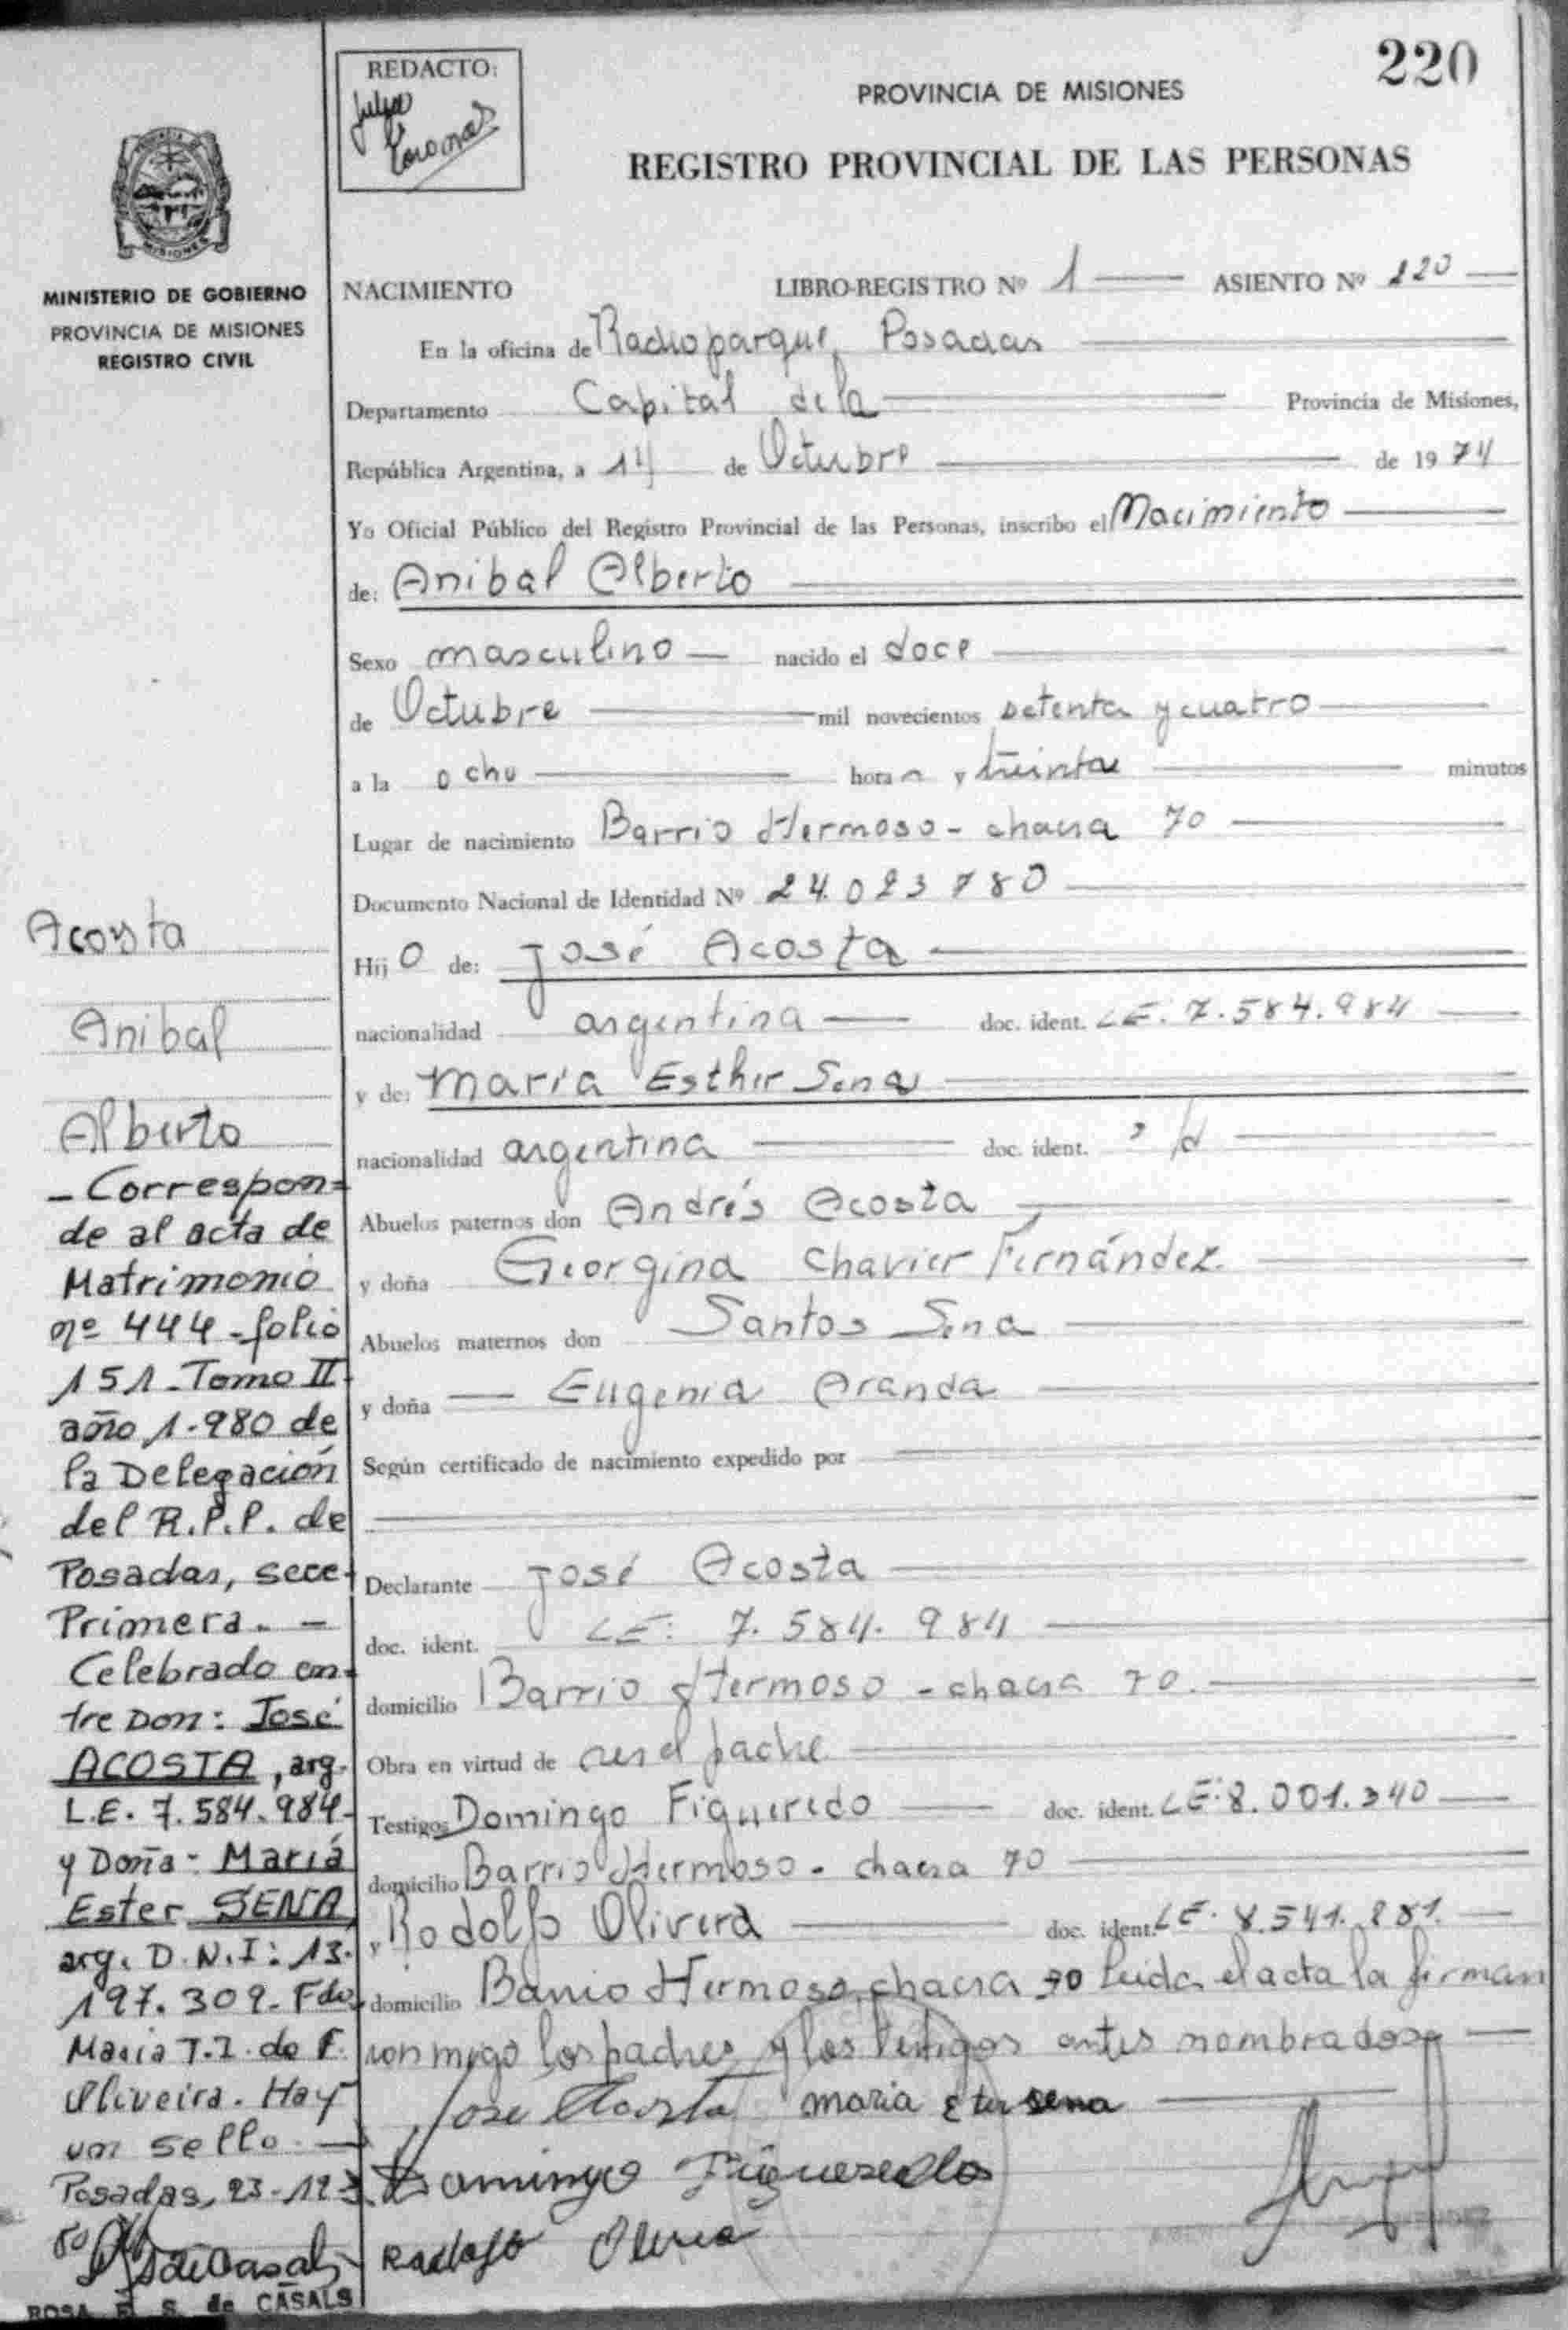 220
REDACTO:
PROVINCIA DE MISIONES
REGISTRO PROVINCIAL DE LAS PERSONAS
MISIONES
MINISTERIO DE GOBIERNO
PROVINCIA DE MISIONES
REGISTRO CIVIL
NACIMIENTO LIBRO-REGISTRO Nº 1 ASIENTO Nº 220
En la oficina de Radioparque, Posadas
Departamento Capital de la Provincia de Misiones,
República Argentina, a 14 de Octubre de 1974
Yo Oficial Público del Registro Provincial de las Personas, inscribo el Nacimiento
de: Anibal Alberto
Sexo masculino nacido el doce
de Octubre mil novecientos setenta y cuatro
a la ocho hora s y treinta minutos
Lugar de nacimiento Barrio Hermoso - chacra 70
Documento Nacional de Identidad Nº 24.023780
Hijo de: José Acosta
nacionalidad argentina doc. ident. LE. 7.584.984
y de: Maria Esther Sena
nacionalidad argentina doc. ident.
Abuelos paternos don Andrés Acosta
y doña Georgina Chavier Fernández.
Abuelos maternos don Santos Sena
y doña Eugenia Aranda
Según certificado de nacimiento expedido por
Declarante José Acosta
doc. ident. LE: 7.584.984
domicilio Barrio Hermoso - chacra 70.
Obra en virtud de ser el padre
Testigos Domingo Figueredo doc. ident. LE: 8.001.340
domicilio Barrio Hermoso - chacra 70
y Rodolfo Olivera doc. ident. LE. 8.541.281.
domicilio Barrio Hermoso, chacra 70 leida el acta la firman
conmigo los padres y los testigos antes nombrados
Jose Acosta maria Ester sena
Domingo Figueredo
Rodolfo Olivera
Acosta
Anibal
Alberto
- Correspon=
de al acta de
Matrimonio
nº 444 - folio
151 - Tomo II
año 1.980 de
la Delegación
del R.P.P. de
Posadas, secc.
Primera. -
Celebrado en-
tre Don: José
ACOSTA, arg.
L.E. 7.584.984-
y Doña: Mariá
Ester SENA
arg. D.N.I: 13.
197.309- Fdo.
Maria T.I. de F.
Oliveira. Hay
un sello.
Posadas, 23-12-
80
ROSA E. S. de CASALS